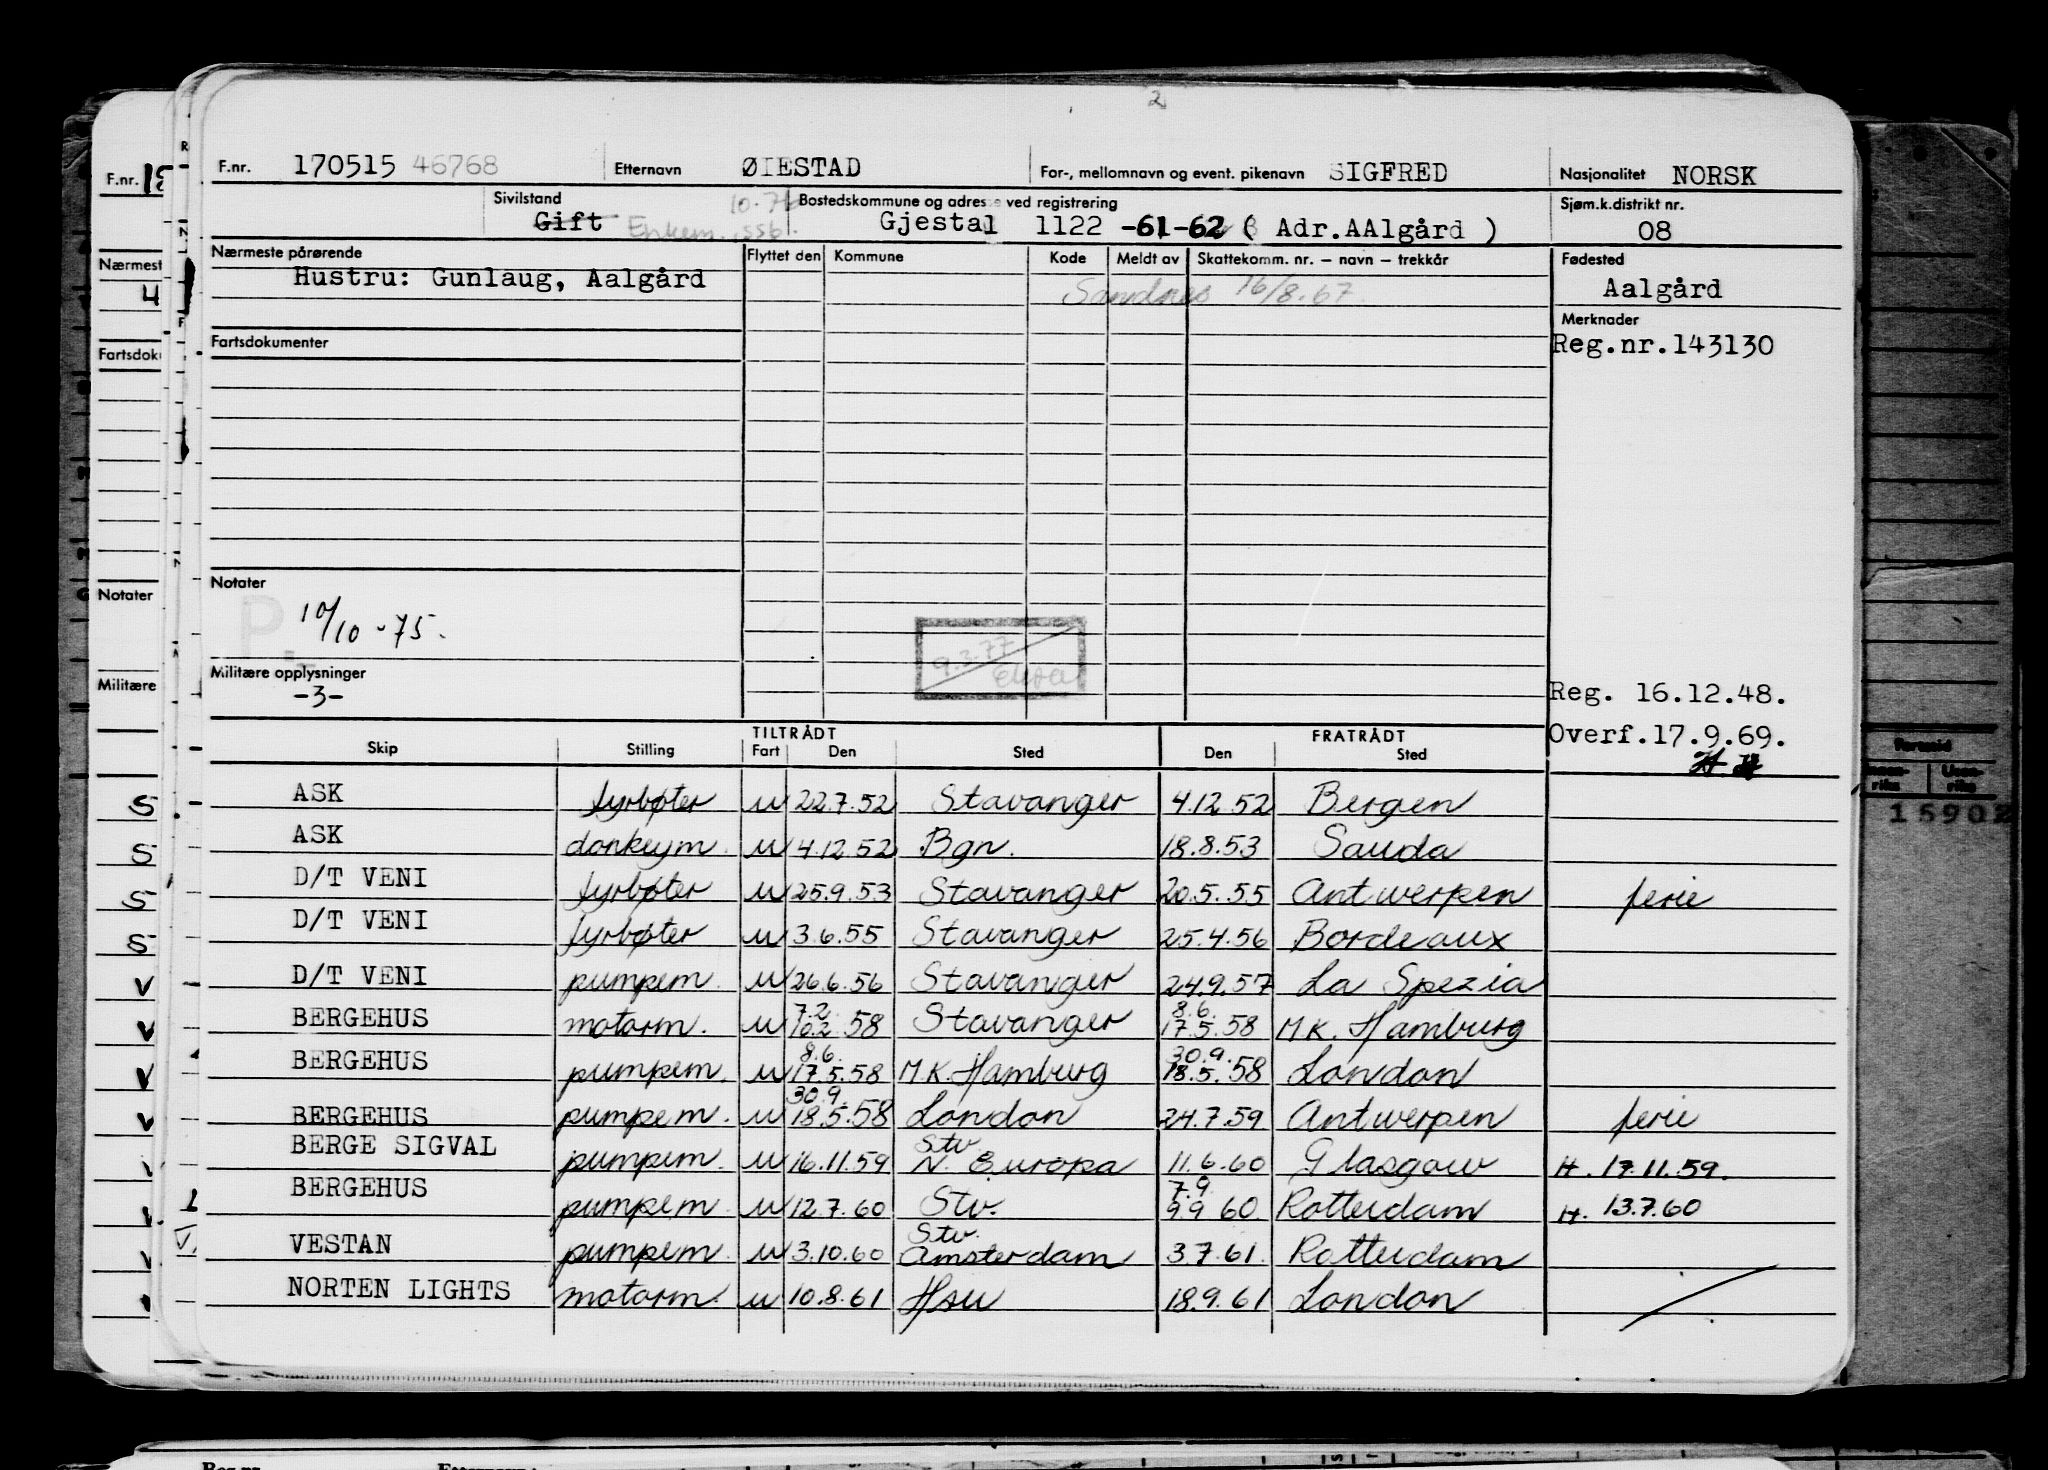 2
F.nr. 170515 46768 Etternavn ØIESTAD For-, mellomnavn og event. pikenavn SIGFRED Nasjonalitet NORSK
Sivilstand Gift Enkem. ssb. 10.76 Bostedskommune og adresse ved registrering Gjestal 1122 -61-62 ( Adr.AAlgård ) Sjøm.k.distrikt nr. 08
Nærmeste pårørende Flyttet den Kommune Kode Meldt av Skattekomm. nr. – navn – trekkår Fødested
Hustru: Gunlaug, Aalgård Sandnes 16/8.67 Aalgård
Merknader
Fartsdokumenter Reg.nr.143130
Notater
P.
10/10 - 75.
9.3.77
Militære opplysninger
-3- Reg. 16.12.48.
Overf.17.9.69.
TILTRÅDT FRATRÅDT
Skip Stilling Fart Den Sted Den Sted
ASK fyrbøter u 22.7.52 Stavanger 4.12.52 Bergen
ASK donkeym. u 4.12.52 Bgn. 18.8.53 Sauda
D/T VENI fyrbøter u 25.9.53 Stavanger 20.5.55 Antwerpen ferie
D/T VENI fyrbøter u 3.6.55 Stavanger 25.4.56 Bordeaux
D/T VENI pumpem. u 26.6.56 Stavanger 24.9.57 La Spezia
7.2. 8.6.
BERGEHUS motorm. u 10.2.58 Stavanger 17.5.58 M.K. Hamburg
8.6. 30.9.
BERGEHUS pumpem. u 17.5.58 M.K. Hamburg 18.5.58 London
30.9.
BERGEHUS pumpem. u 18.5.58 London 24.7.59 Antwerpen ferie
Stv.
BERGE SIGVAL pumpem. u 16.11.59 N. Europa 11.6.60 Glasgow H. 17.11.59.
7.9.
BERGEHUS pumpem. u 12.7.60 Stv. 9.9.60. Rotterdam H. 13.7.60
Stv.
VESTAN pumpem. u 3.10.60 Amsterdam 3.7.61. Rotterdam
NORTEN LIGHTS motorm. u 10.8.61 Hsu 18.9.61 London
F.nr.
Nærmest
Fartsdok
Notater
Militære
S
S
S
S
V
V
V
V
15902